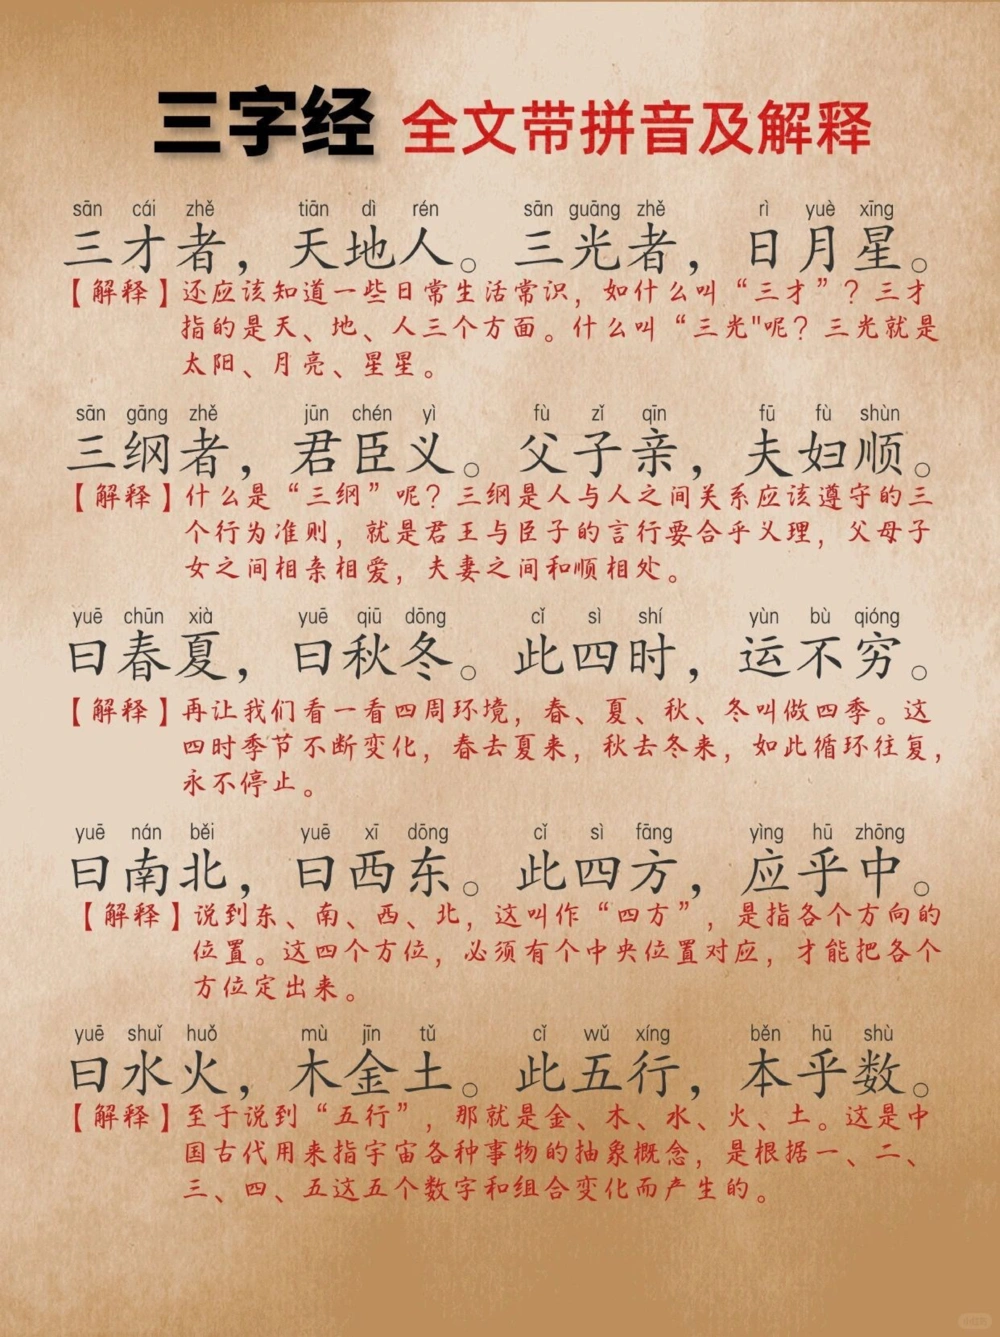 三字经 全文带拼音及解释
sān cái zhě tiān dì rén sān guāng zhě rì yuè xīng
三才者，天地人。三光者，日月星。
【解释】还应该知道一些日常生活常识，如什么叫“三才”？三才
指的是天、地、人三个方面。什么叫“三光"呢？三光就是
太阳、月亮、星星。
sān gāng zhě jūn chén yì fù zǐ qīn fū fù shùn
三纲者，君臣义。父子亲，夫妇顺。
【解释】什么是“三纲”呢？三纲是人与人之间关系应该遵守的三
个行为准则，就是君王与臣子的言行要合乎义理，父母子
女之间相亲相爱，夫妻之间和顺相处。
yuē chūn xià yuē qiū dōng cǐ sì shí yùn bù qióng
曰春夏，曰秋冬。此四时，运不穷。
【解释】再让我们看一看四周环境，春、夏、秋、冬叫做四季。这
四时季节不断变化，春去夏来，秋去冬来，如此循环往复，
永不停止。
yuē nán běi yuē xī dōng cǐ sì fāng yìng hū zhōng
曰南北，曰西东。此四方，应乎中。
【解释】说到东、南、西、北，这叫作“四方”，是指各个方向的
位置。这四个方位，必须有个中央位置对应，才能把各个
方位定出来。
yuē shuǐ huǒ mù jīn tǔ cǐ wǔ xíng běn hū shù
曰水火，木金土。此五行，本乎数。
【解释】至于说到“五行”，那就是金、木、水、火、土。这是中
国古代用来指宇宙各种事物的抽象概念，是根据一、二、
三、四、五这五个数字和组合变化而产生的。